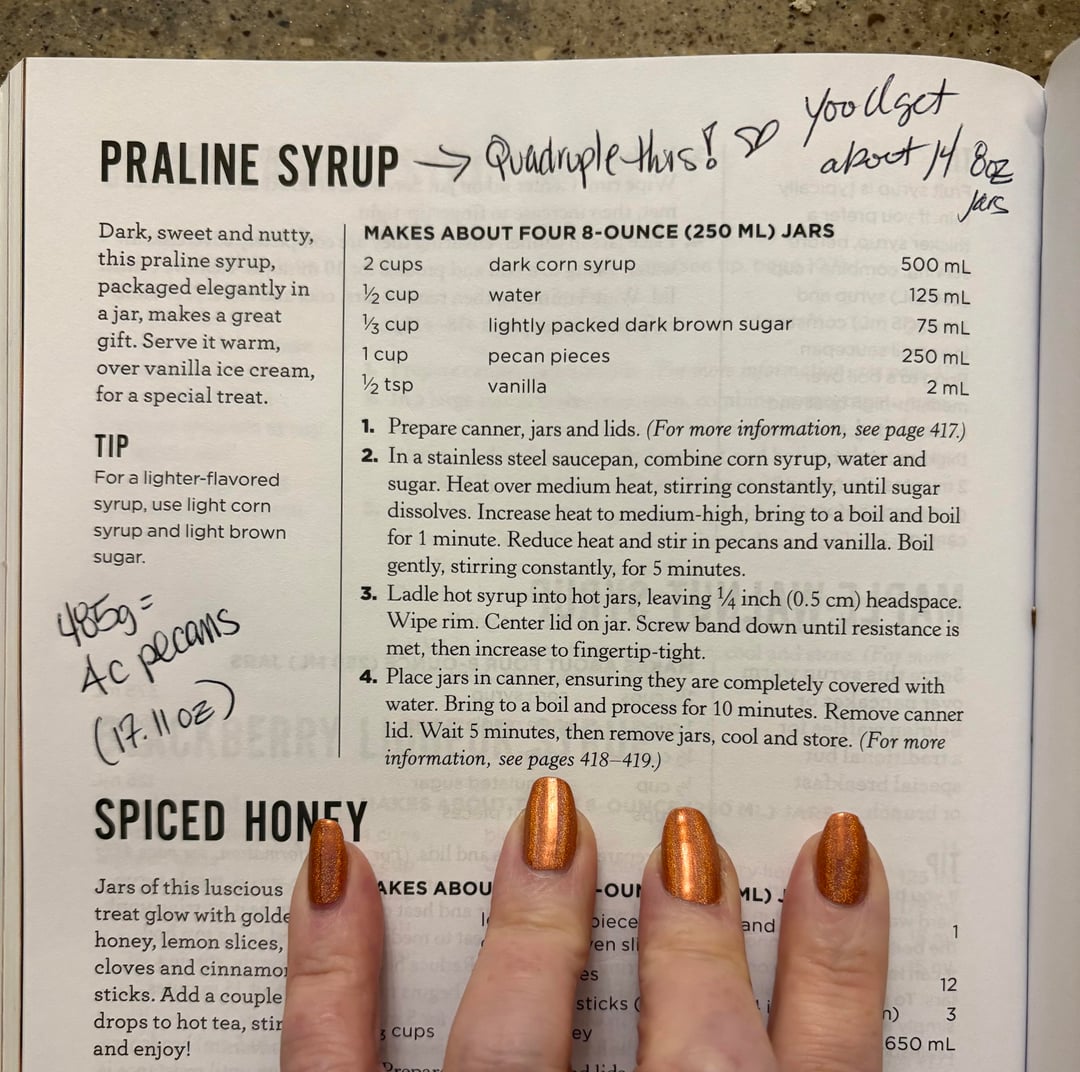 PRALINE SYRUP → Quadruple this! ♡
You'll get
about 14 8oz
jars
Dark, sweet and nutty,
this praline syrup,
packaged elegantly in
a jar, makes a great
gift. Serve it warm,
over vanilla ice cream,
for a special treat.
TIP
For a lighter-flavored
syrup, use light corn
syrup and light brown
sugar.
485g =
4c pecans
(17.11 oz)
MAKES ABOUT FOUR 8-OUNCE (250 ML) JARS
2 cups dark corn syrup 500 mL
½ cup water 125 mL
⅓ cup lightly packed dark brown sugar 75 mL
1 cup pecan pieces 250 mL
½ tsp vanilla 2 mL
1. Prepare canner, jars and lids. (For more information, see page 417.)
2. In a stainless steel saucepan, combine corn syrup, water and
sugar. Heat over medium heat, stirring constantly, until sugar
dissolves. Increase heat to medium-high, bring to a boil and boil
for 1 minute. Reduce heat and stir in pecans and vanilla. Boil
gently, stirring constantly, for 5 minutes.
3. Ladle hot syrup into hot jars, leaving ¼ inch (0.5 cm) headspace.
Wipe rim. Center lid on jar. Screw band down until resistance is
met, then increase to fingertip-tight.
4. Place jars in canner, ensuring they are completely covered with
water. Bring to a boil and process for 10 minutes. Remove canner
lid. Wait 5 minutes, then remove jars, cool and store. (For more
information, see pages 418–419.)
SPICED HONEY
Jars of this luscious
treat glow with golde
honey, lemon slices,
cloves and cinnamo
sticks. Add a couple
drops to hot tea, stir
and enjoy!
AKES ABOU -OUN ML) J
piece and 1
en sli
es 12
sticks ( n) 3
cups ey 650 mL